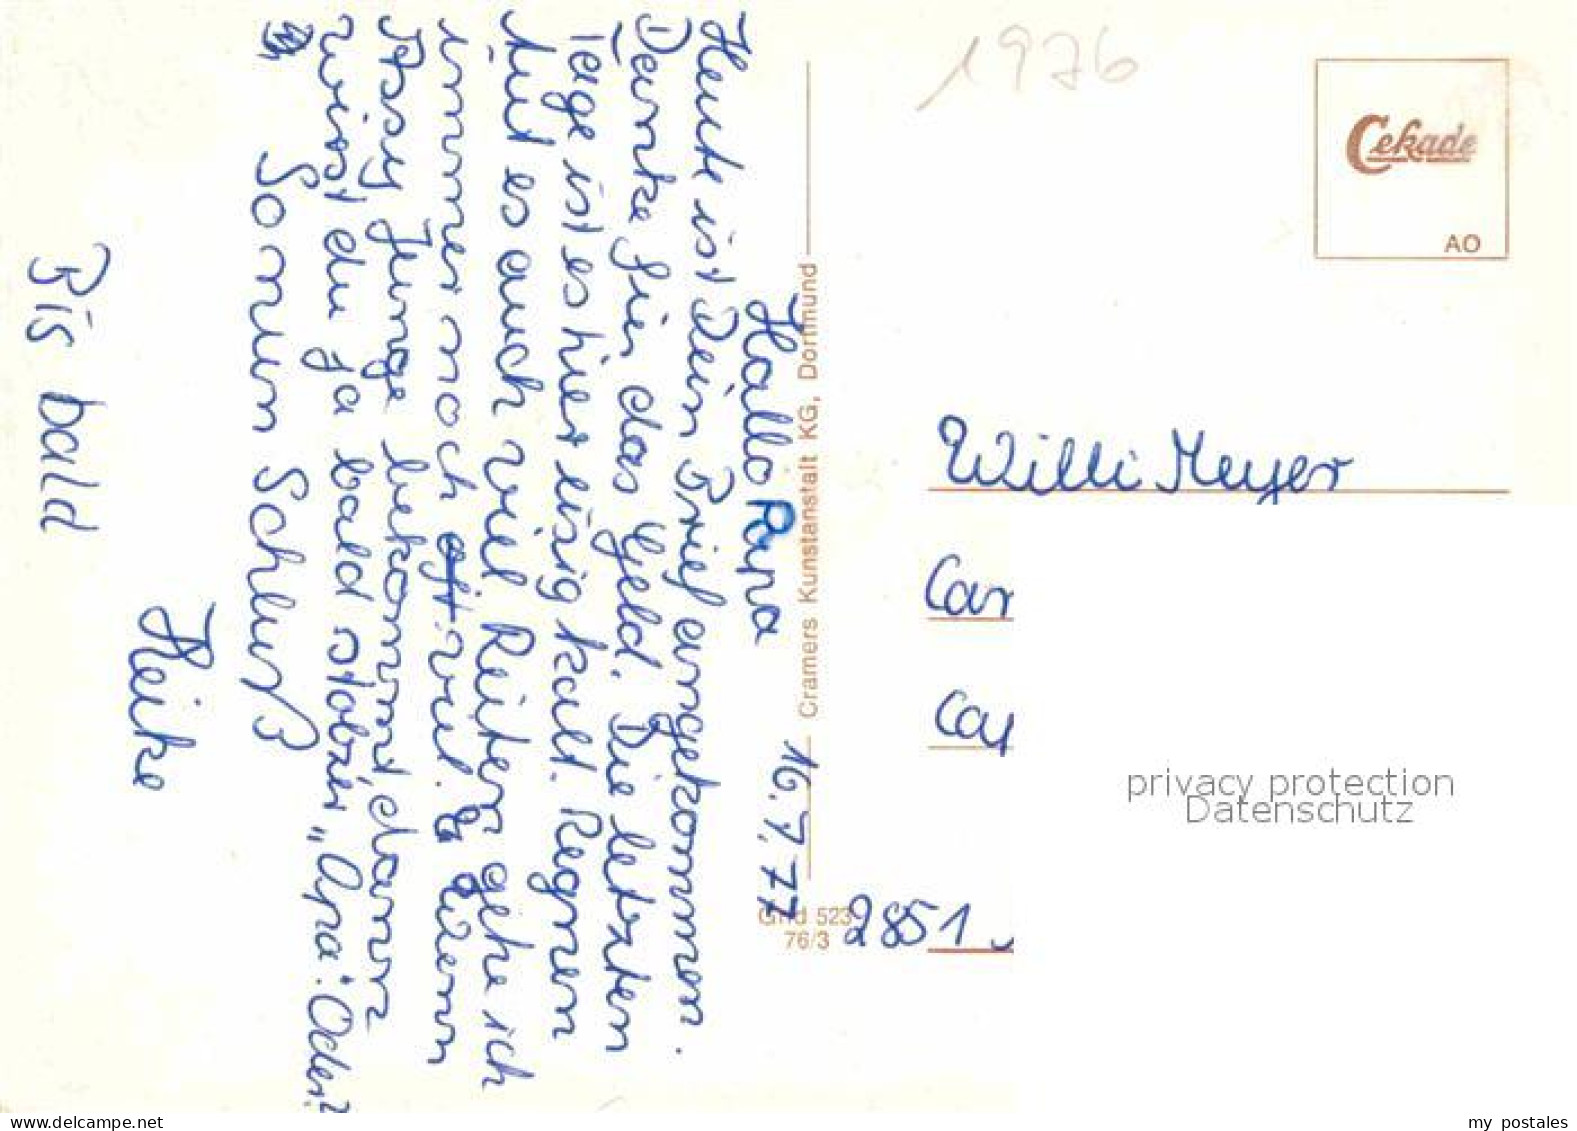 16.7.77
Hallo Papa
Heute ist Dein Brief angekommen.
Danke für das Geld. Die letzten
Tage ist es hier eisig kalt. Regnen
tut es auch viel. Reiten gehe ich
immer noch oft viel. Wenn
Assy Junge bekommt, dann
wirst du ja bald stolzer „Opa“. Oder?
So nun Schluß
Heike
Bis bald
Cramers Kunstanstalt KG, Dortmund
Gnd 523
76/3
1976
Cekade
AO
Willi Meyer
Car
Cap
2851
privacy protection
Datenschutz
my postales